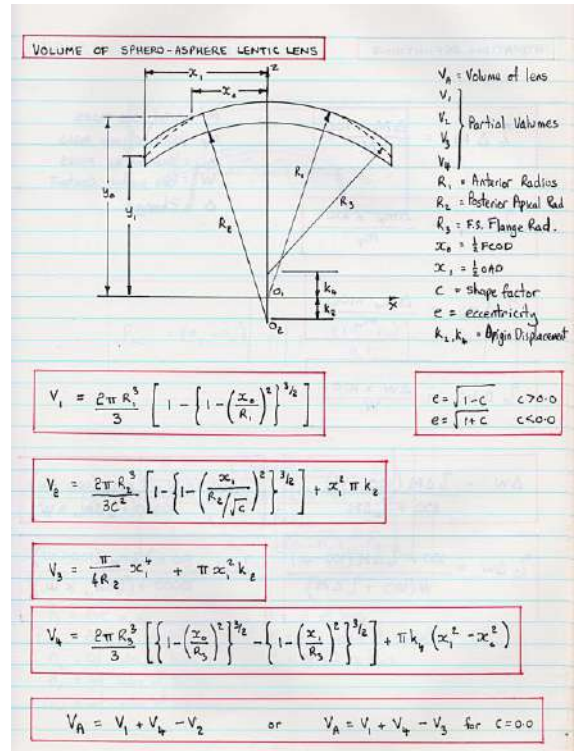 VOLUME OF SPHERO-ASPHERE LENTIC LENS
z
x₁
x₀
y₀
y₁
R₂
R₁
R₃
k₄
k₂
O₁
O₂
x̄
V_A = Volume of lens
V₁
V₂
V₃
V₄
Partial Values
R₁ = Anterior Radius
R₂ = Posterior Apical Rad
R₃ = F.S. Flange Rad.
x₀ = ½ FCOD
x₁ = ½ OAD
c = shape factor
e = eccentricity
k₂, k₄ = Origin Displacement
V₁ = 2πR₁³/3 [1 - {1 - (x₀/R₁)²}^3/2]
e = √(1-c) c>0.0
e = √(1+c) c<0.0
V₂ = 2πR₂³/3c² [1 - {1 - (x₁/(R₂/√c))²}^3/2] + x₁² π k₂
V₃ = π/4R₂ x₁⁴ + π x₁² k₂
V₄ = 2πR₃³/3 [{1 - (x₀/R₃)²}^3/2 - {1 - (x₁/R₃)²}^3/2] + πk₄ (x₁² - x₀²)
V_A = V₁ + V₄ - V₂ or V_A = V₁ + V₄ - V₃ for c=0.0